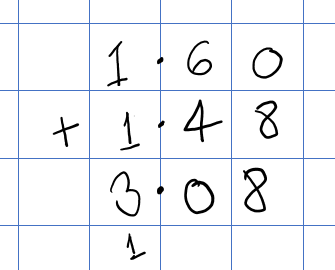 1·60
+ 1·48
3·08
1